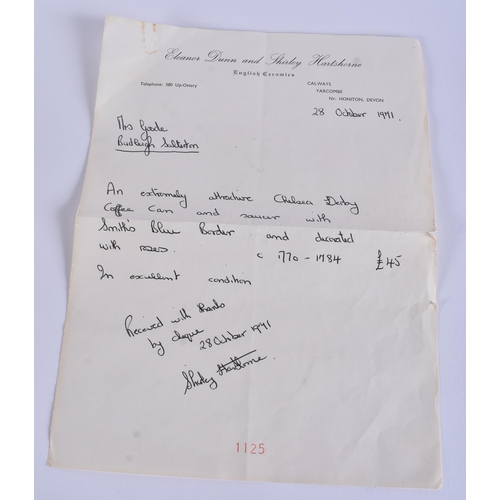 Eleanor Dunn and Shirley Hartshorne
English Ceramics
Telephone: 580 Up-Ottery
CALWAYS
YARCOMBE
Nr. HONITON, DEVON
28 October 1971.
Mrs Goode
Budleigh Salterton
An extremely attractive Chelsea Derby
Coffee Can and saucer with
Smith's Blue Border and decorated
with roses. c 1770 - 1784 £45
In excellent condition
Received with thanks
by cheque 28 October 1971
Shirley Hartshorne
1125